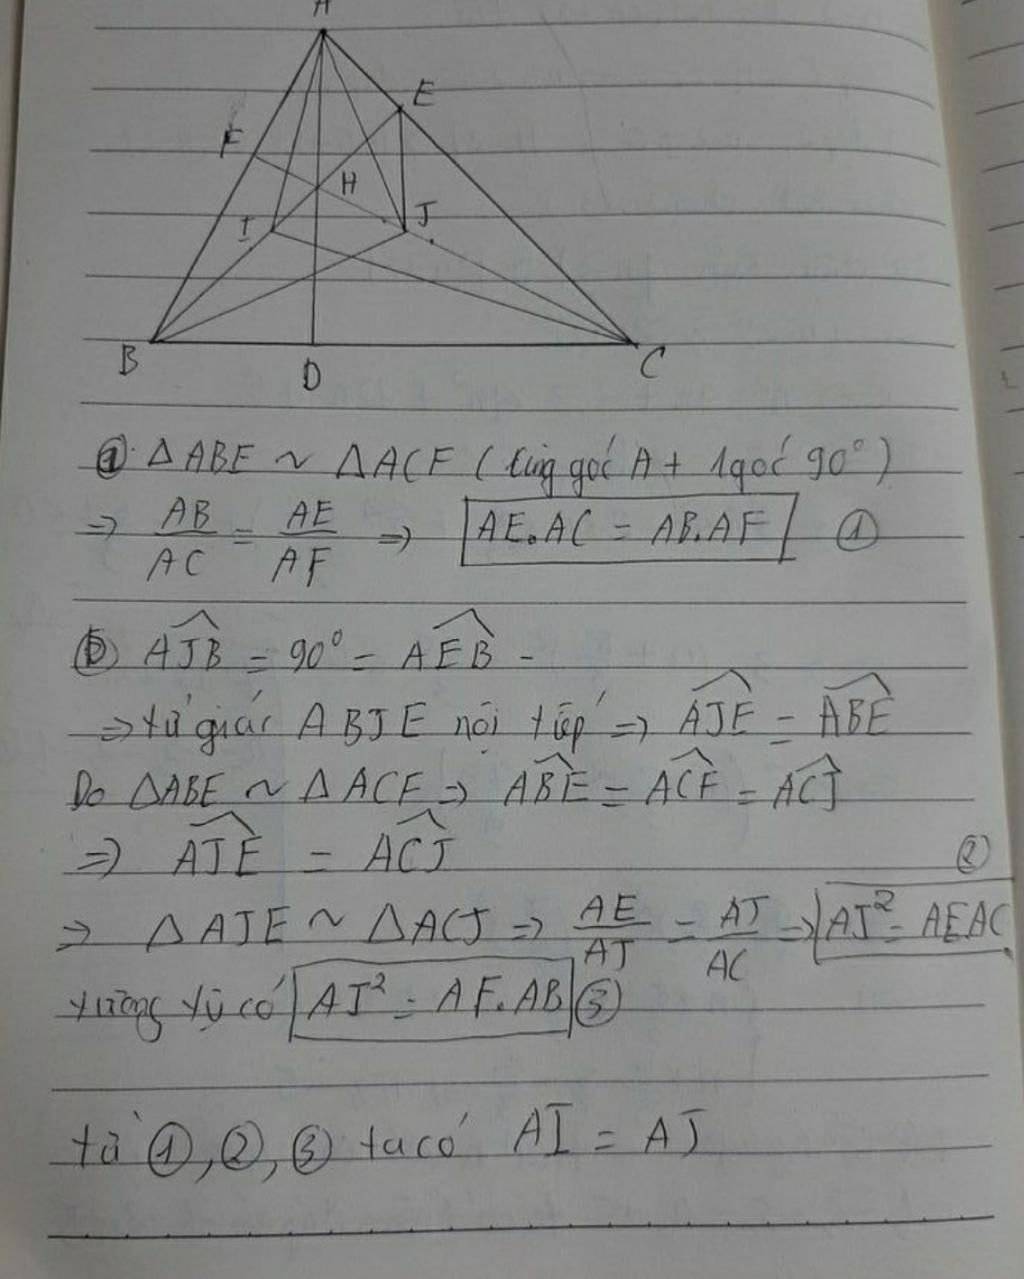 A
E
F
H
I
J
B
D
C
a) ΔABE ~ ΔACF (cùng góc A + 1 góc 90°)
=> AB/AC = AE/AF => AE.AC = AB.AF ①
b) AJB = 90° = AEB
=> tứ giác ABJE nội tiếp => AJE = ABE
Do ΔABE ~ ΔACF => ABE = ACF = ACJ
=> AJE = ACJ
②
=> ΔAJE ~ ΔACJ => AE/AJ = AJ/AC => AJ² = AE AC
tương tự có AI² = AF.AB ③
từ ①, ②, ③ ta có AI = AJ